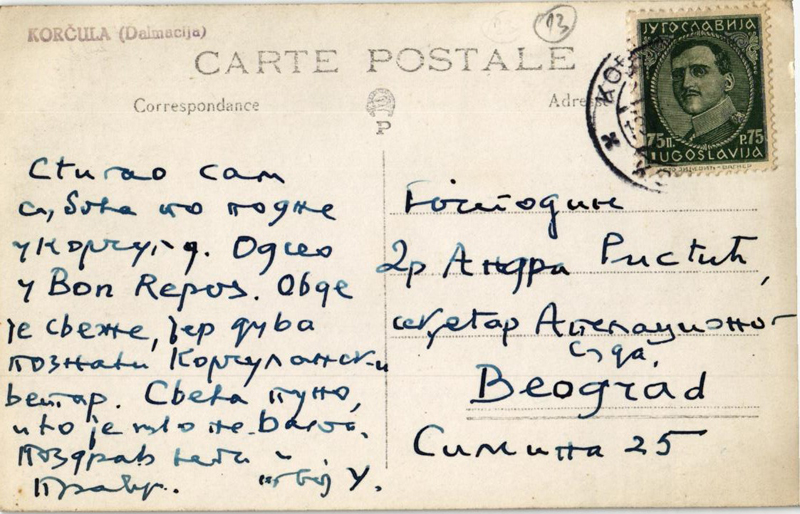 KORČULA (Dalmacija)
13
CARTE POSTALE
Correspondance
Adresse
P
ЈУГОСЛАВИЈА
75п. P.75
JUGOSLAVIJA
Стигао сам
по подне
у Одсео
у Bon Repos. Овде
је свеже, јер дува
познати Корчулански
ветар. Света пуно,
што је
Поздрав
твој У.
Господин
Др Андра Ристић,
секретар Апелационог
Суда,
Beograd
Симина 25